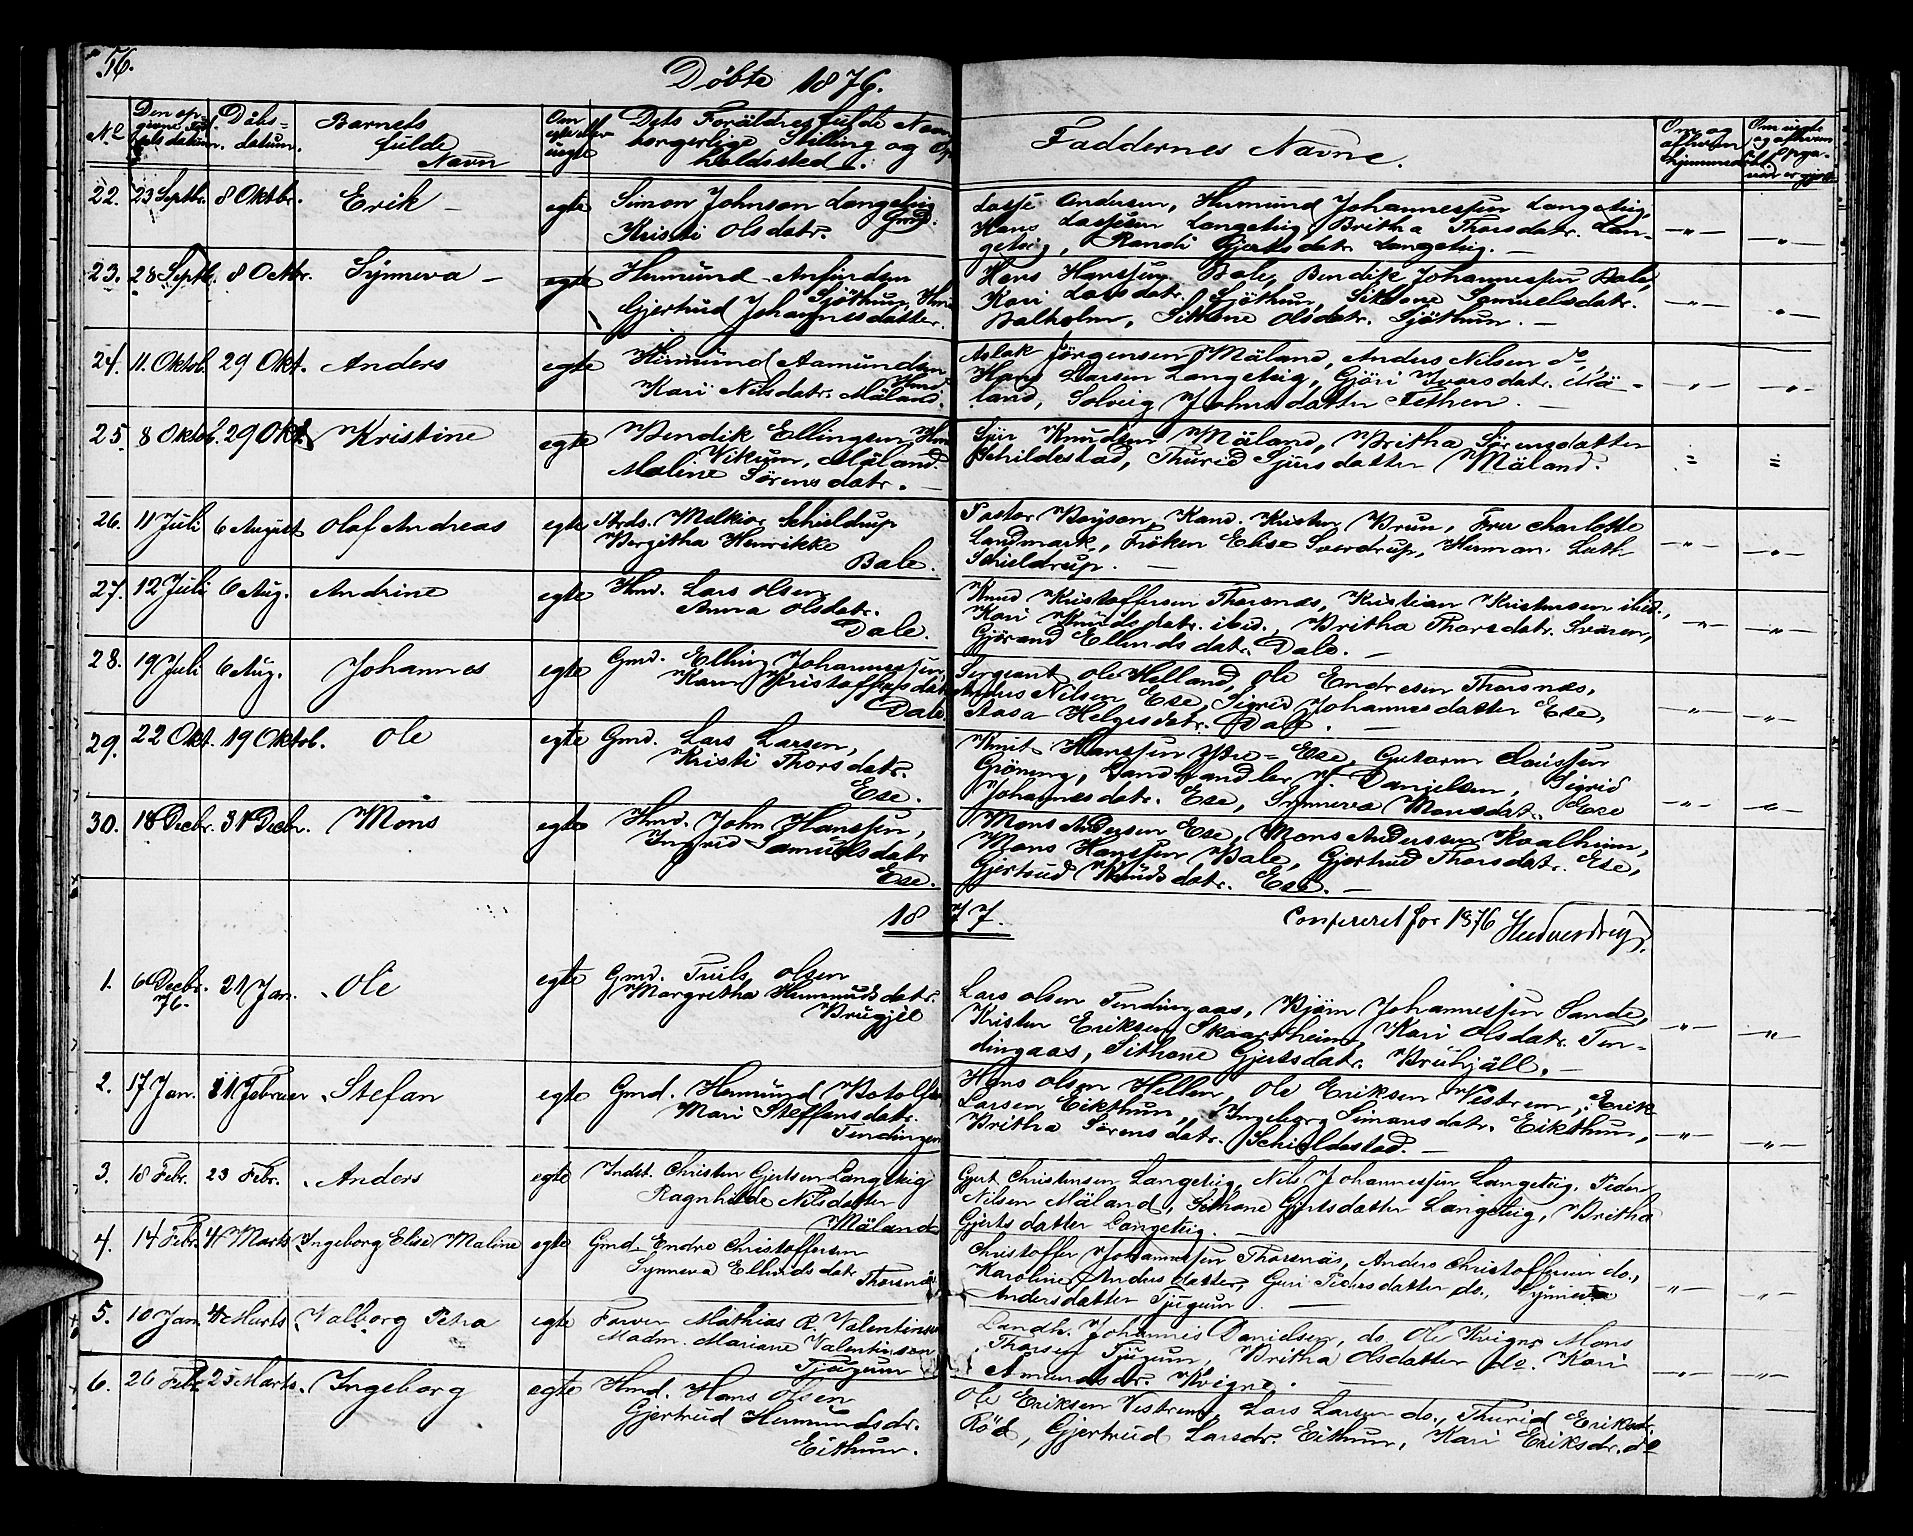 56.
Döbte 1876.
No
Den op-
givne Fød-
selsdatum.
Daabs-
datum.
Barnets
fulde
Navn
Om
egte eller
uegte
Dets Forældres fulde Navn
borgerlige Stilling og Op-
holdssted.
Faddernes Navne.
22. 23 Septbr. 8 Oktbr. Erik – egte Simon Johnson Langeteig
Kristi Olsdatr. Gmd.
Lasse Andersen, Hermund Johannessen Langeteig,
Hans Lassesen Langeteig, Britha Thorsdatr. Lan-
geteig, Randi Gjertsdatr. Langeteig. –
23. 28 Septb. 8 Octbr. Synneva – egte Hermund Anfindsen
Sjöthun, Hmd
Gjertrud Johannesdatter.
Hans Hanssen Bale, Bendik Johannessen Bale,
Kari Larsdatr. Sjöthun, Sithone Samuelsdatr.
Balholm, Sithone Olsdatr. Sjöthun. –
24. 11. Oktob. 29 Okt. Anders egte Hermund Aamundsen
Hmd
Kari Nilsdatr. Mäland.
Aslak Jörgensen Mäland, Andus Nilsen do,
Hans Larsen Langeteig, Gjöri Ivarsdatr. Mä-
land, Solveig Johnsdatter Fethen. –
25. 8 Oktob. 29 Okt. Kristine egte Bendik Ellingsen, Hmd
Vikum, Mäland.
Malene Sörensdatr. –
Sjur Knudsen Mäland, Britha Sörensdatter
Schildestad, Thurid Sjursdatter Mäland.
26. 11 Juli 6 August Olaf Andreas egte Strds. Melkior Schieldrup
Bergitha Henrikke
Bale.
Pastor Boysen, Kand. Kristen Brun, Fru Charlotte
Landmark, Fröken Elise Sverdrup, Herman Lutt-
Schieldrup. –
27. 12 Juli 6 Aug. Andrine egte Hmd. Lars Olsen
Anna Olsdatr.
Dale.
Knud Kristoffersen Thorsnæs, Kristian Kristensen ibid.,
Kari Knudsdatr. ibid., Britha Thorsdatr. Svären,
Gjörand Ellendsdatr. Dale. –
28. 19 Juli 6 Aug. Johannes egte Gmd. Elling Johannessen
Karen Kristoffersdatr
Dale
Sergeant Ole Helland, Ole Endresen Thorsnæs,
Andus Nilsen Ese, Sigrid Johannesdatter Ese,
Aasa Helgesdatr. Dale. –
29. 22 Okt. 19 Oktob. Ole egte Gmd. Lars Larsen,
Kristi Thorsdatr.
Ese.
Knut Hanssen Ytre-Ese, Gutorm Claussen
Gröning, Landhandler J. Danielsen, Sigrid
Johannesdatr. Ese, Synneva Monsdatr. Ese
30. 18 Decbr. 31 Decbr. Mons egte Hmd. John Hanssen,
Ingrid Samuelsdatr
Ese.
Mons Andersen Ese, Mons Anderssen Kaalheim,
Mons Hanssen Bale, Gjertrud Thorsdatr. Ese,
Gjertrud Knudsdatr. Ese. –
1877.
Confereret for 1876
1. 6 Decbr. 76. 21 Jan. Ole egte Gmd. Truls Olsen
Margretha Hermundsdatr.
Brugjel
Lars Olsen Tendingaas, Björn Johannessen Sande,
Kristen Eriksen Skaartheim, Kari Olsdatr. Ten-
dingaas, Sithone Gjertsdatr. Bruhjäll. –
2. 17 Jan. 11 Februar Stefan egte Gmd. Hermund Botolfsen
Mari Steffensdatr.
Tendingen
Hans Olsen Hellen, Ole Eriksen Vestrem, Erik
Larsen Eikthun, Ingeborg Simonsdatr. Eikthun,
Britha Sörensdatr. Schieldestad. –
3. 18 Febr. 23 Febr. Anders egte Indst. Christen Gjertsen Langeteig
Ragnhilde Nilsdatter
Mäland
Gjert Christensen Langeteig, Nils Johannessen Langeteig, Peder
Nilsen Mäland, Sithone Gjertsdatter Langeteig, Britha
Gjertsdatter Langeteig. –
4. 14 Febr. 4 Marts Ingeborg Elise Maline egte Gmd. Endre Christoffersen
Synneva Ellendsdatr
Thorsnäs
Christoffer Johannessen Thorsnäs, Anders Christoffersen do.,
Karoline Andersdatter, Guri Pedersdatter do., Synneva
Andersdatter Tjugum. –
5. 10 Jan. 4 Marts Valborg Petra egte Farver Mathias R. Valentinsen
Madm. Mariane Valentinsen
Tjugum
Landh. Johannes Danielsen, do. Ole Kvigne, Mons
Thorsen Tjugum, Britha Olsdatter do. Kari
Amundsdr. Kvigne. –
6. 26 Febr 25 Marts. Ingeborg egte Hmd. Hans Olsen
Gjertrud Hermundsdr.
Eithun.
Ole Eriksen Vestrem, Lars Larsen do., Thurid Eriksdr.
Röd, Gjertrud Larsdr. Eithun, Kari Eriksdr. do